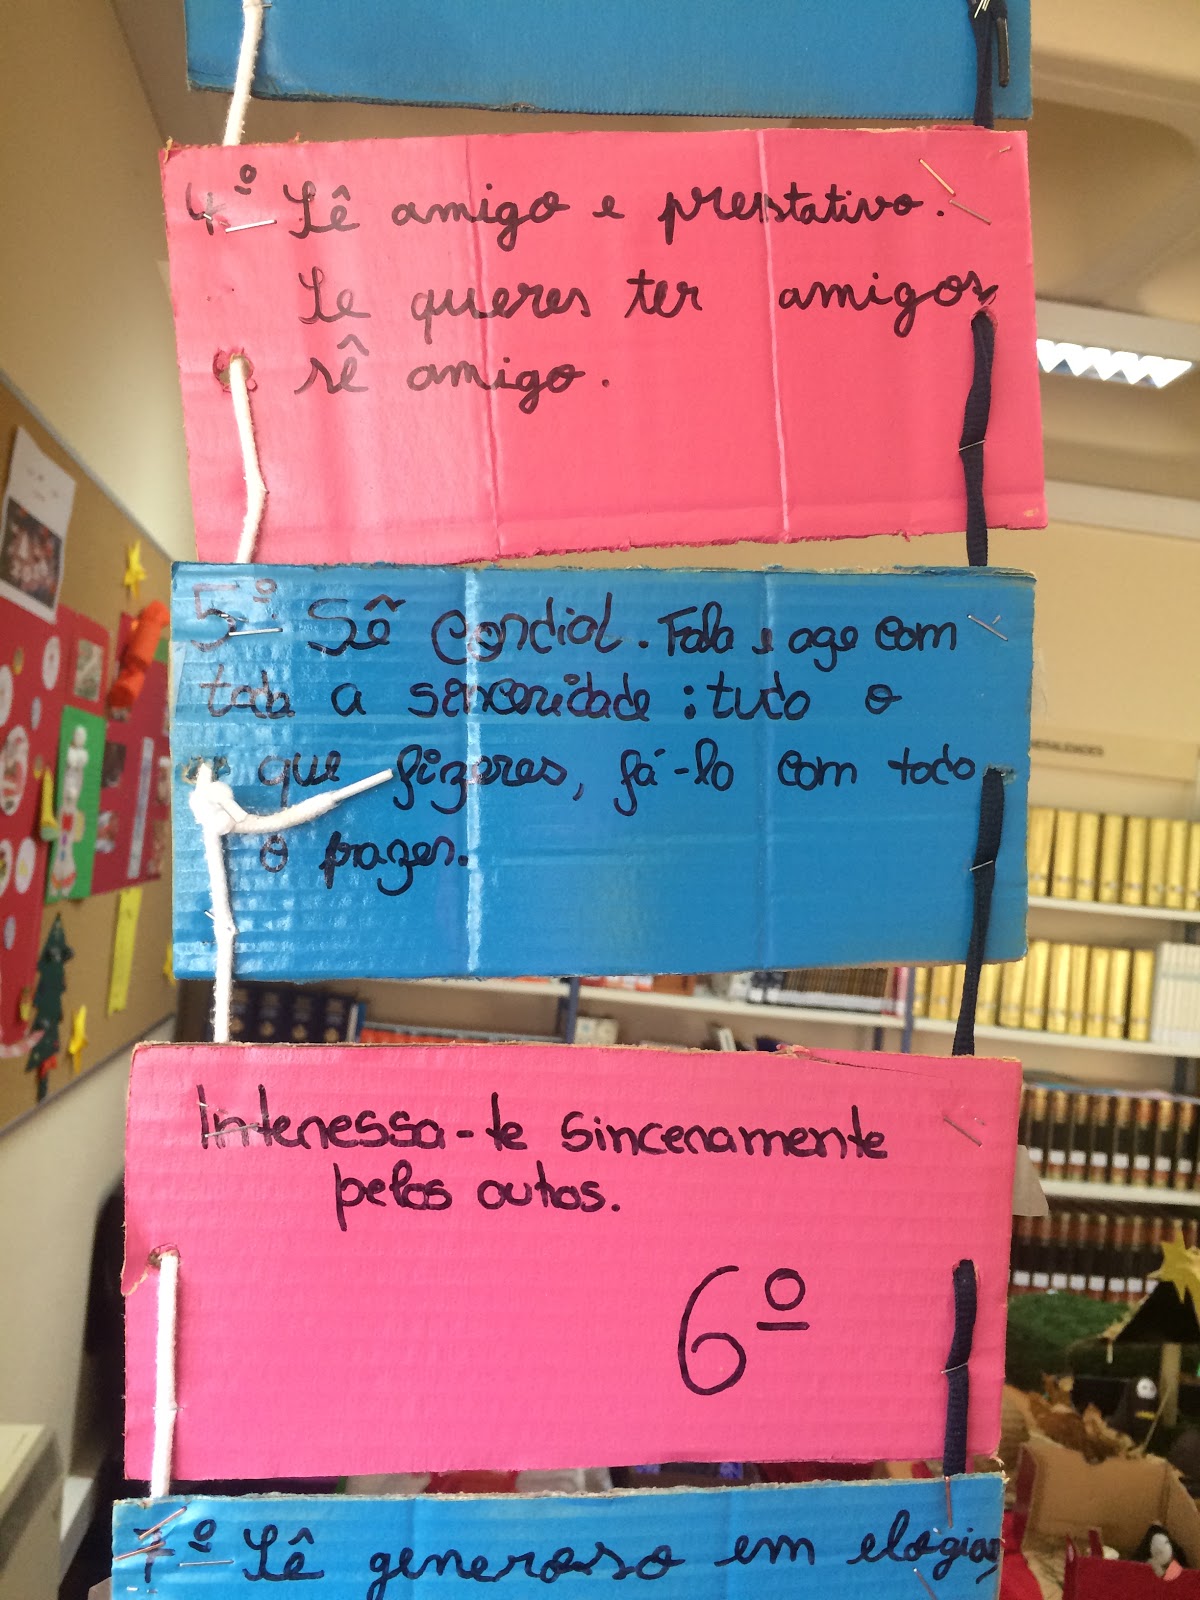 4º Sê amigo e prestativo.
Se queres ter amigos
sê amigo.
5º Sê cordial. Fala e age com
toda a sinceridade: tudo o
que fizeres, fá-lo com todo
o prazer.
Interessa-te sinceramente
pelos outros.
6º
7º Sê generoso em elogiar